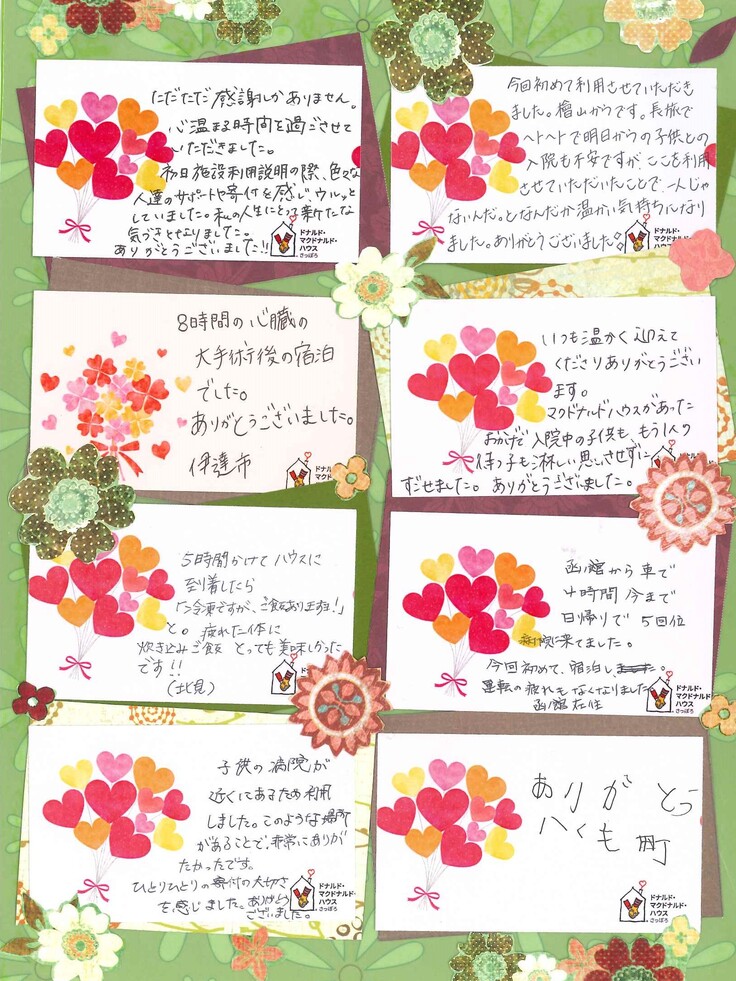 ただただ感謝しかありません。
心温まる時間を過ごさせて
いただきました。
初日施設利用説明の際、色々な
人達のサポートや寄付を感じ、ウルッと
していました。私の人生にとって新たな
気づきとなりました。
ありがとうございました!!
ドナルド・
マクドナルド・
ハウス
さっぽろ
今回初めて利用させていただき
ました。檜山からです。長旅で
ヘトヘトで明日からの子供との
入院も不安ですが、ここを利用
させていただいたことで、一人じゃ
ないんだ。となんだか温かい気持ちになり
ました。ありがとうございました。
8時間の心臓の
大手術後の宿泊
でした。
ありがとうございました。
伊達市
ドナル
マクド
いつも温かく迎えて
くださりありがとうござい
ます。
マクドナルドハウスがあった
おかげで入院中の子供も、もう1人の
待つ子も淋しい思いさせずに
すごせました。ありがとうございました。
5時間かけてハウスに
到着したら
「冷凍ですが、ご飯あります!」
と。疲れた体に
炊きこみご飯 とっても美味しかった
です!!
(北見)
函館から車で
4時間 今まで
日帰りで 5回位
来てました。
今回初めて、宿泊し
運転の疲れもなくなりました
函館在住
ドナルド・
マクドナルド・
ハウス
さっぽろ
子供の病院が
近くにあるため利用
しました。このような場所
があることで、非常にありが
たかったです。
ひとりひとりの寄付の大切さ
を感じました。ありがとう
ございました。
ドナルド・
マクドナルド・
ハウス
さっぽろ
ありがとう
八くも町
ドナルド・
マクドナルド・
ハウス
さっぽろ